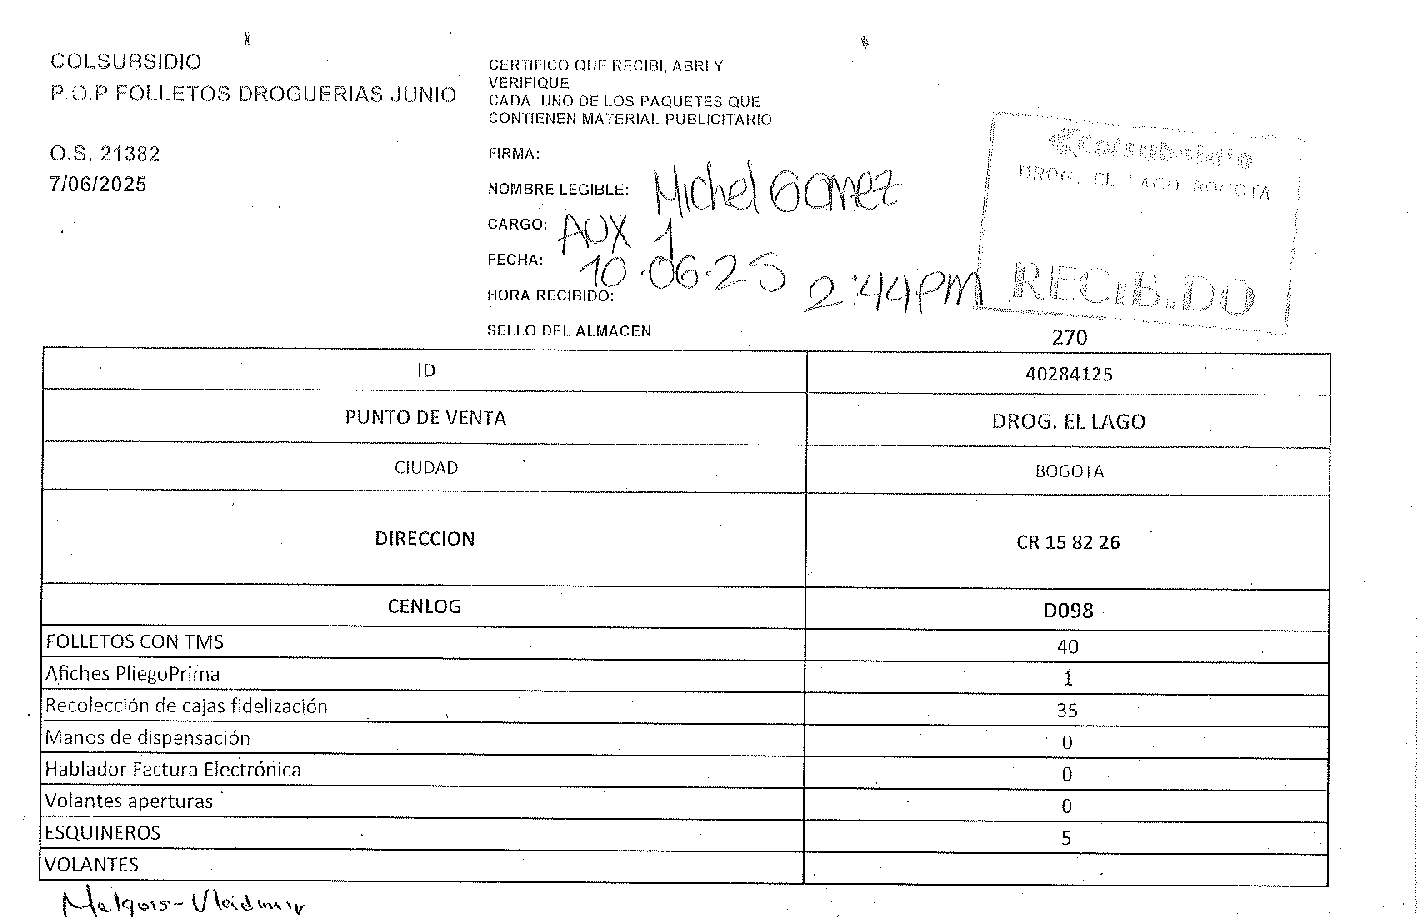 COLSUBSIDIO
P.O.P FOLLETOS DROGUERIAS JUNIO
O.S. 21382
7/06/2025
CERTIFICO QUE RECIBI, ABRI Y
VERIFIQUE
CADA UNO DE LOS PAQUETES QUE
CONTIENEN MATERIAL PUBLICITARIO
FIRMA:
NOMBRE LEGIBLE: Michel Gomez
CARGO: AUX 1
FECHA: 10.06.25
HORA RECIBIDO: 2:44PM
SELLO DEL ALMACEN
Colsubsidio
DROG. EL LAGO BOGOTA
RECIBIDO
270
ID 40284125
PUNTO DE VENTA DROG. EL LAGO
CIUDAD BOGOTA
DIRECCION CR 15 82 26
CENLOG D098
FOLLETOS CON TMS 40
Afiches PliegoPrima 1
Recolección de cajas fidelización 35
Manos de dispensación 0
Hablador Factura Electrónica 0
Volantes aperturas 0
ESQUINEROS 5
VOLANTES